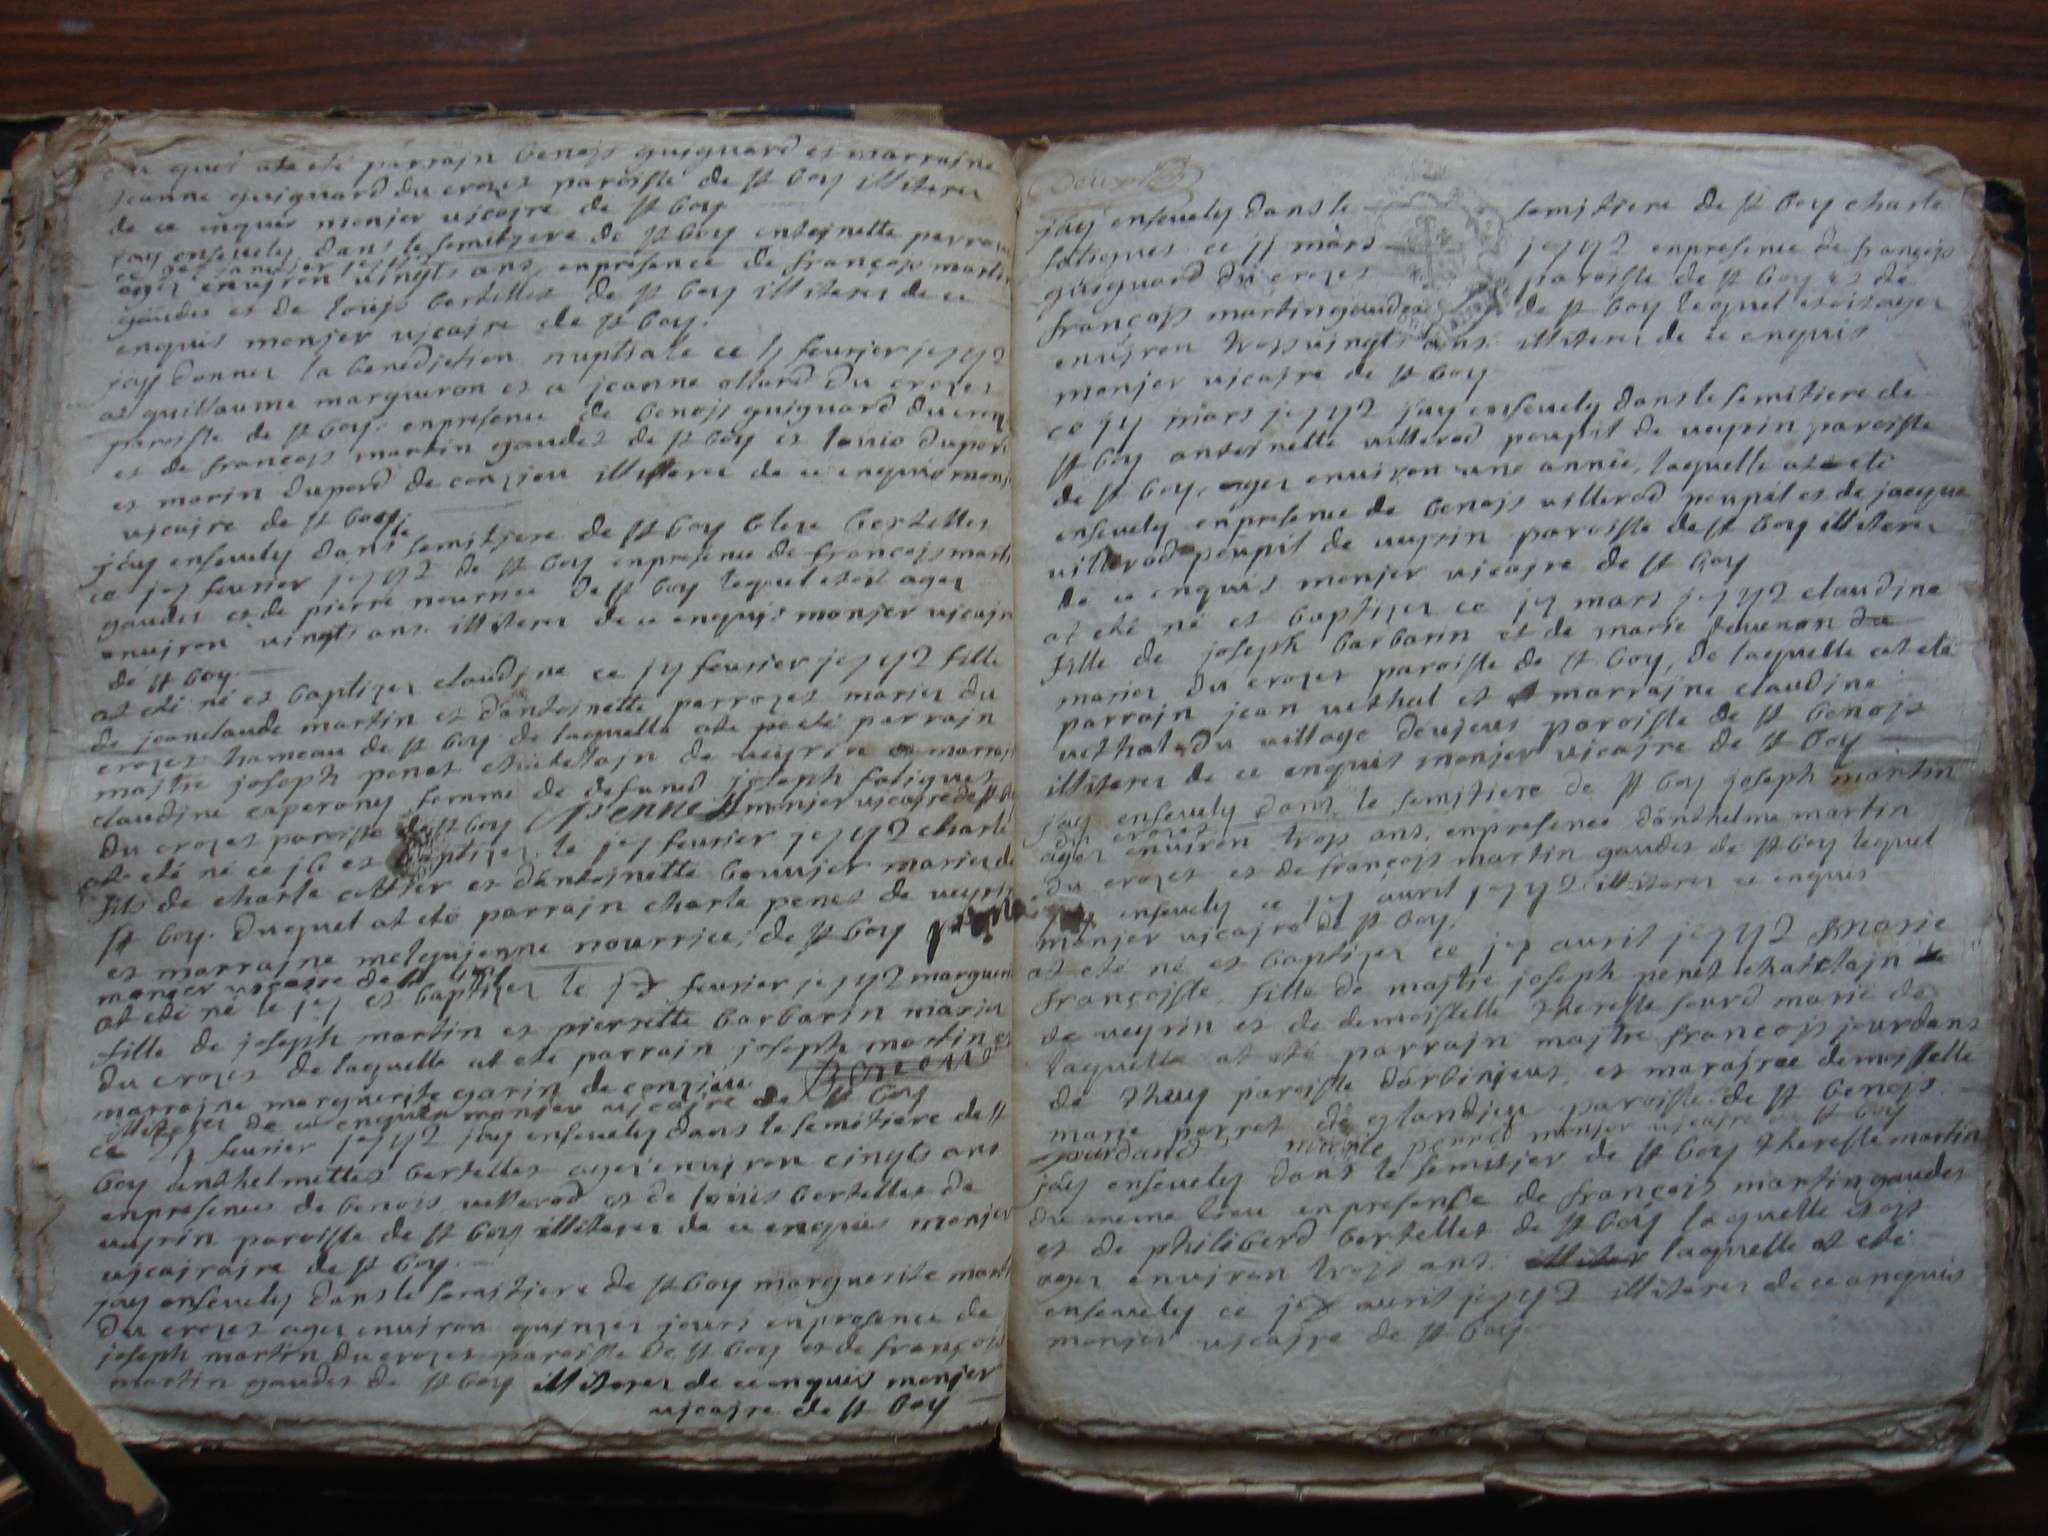 du quel at été parrain benois guiguard et marraine
jeanne guiguard du crozes paroisse de st boy illiterez
de ce enquis monier vicaire de st boy
jay ensevely dans le semitiere de st boy entoinette perrozes
agez environ vingts ans enpresence de françois martin
gaudes et de louis bertelles de st boy illiterez de ce
enquis monier vicaire de st boy.
jay donner la benediction nuptiale ce fevrier
at guillaume margueron et a jeanne ollard du crozes
paroisse de st boy. enpresence de benois guiguard du croz
et de françois martin gaudes de st boy et louis dupord
et marin dupord de conzieu illiterez de ce enquis moni
vicaire de st boy
jay ensevely dans le semitiere de st boy bertelles
ce fevrier de st boy enpresence de françois marti
gaudes et de pierre nournee de st boy lequel etoit agez
environ vingts ans. illiterez de ce enquis monier vicair
de st boy
at eté né et baptizez claudine ce fevrier fille
de jeanclaude martin et dantoinette perrozes mariez du
crozes hameau de st boy de laquelle at eté parrain
maitre joseph penet chatellain de veyrin et marrai
claudine caperony femme de defund joseph fatigues
du crozes paroisse de st boy Penet monier vicaire de st bo
at eté né ce 16 et baptizez le fevrier charle
fils de charle et dantoinette bouvier mariez de
st boy. duquel at eté parrain charle penet de veyrin
et marraine nourrice de st boy
monier vicaire de st boy
at eté né le et baptizez le fevrier marguerit
fille de joseph martin et pierrette barbarin mariez
du crozes de laquelle at eté parrain joseph martin et
marraine marguerite garin de conzieu
illiterez de ce enquis monier vicaire de st boy
ce fevrier jay ensevely dans le semitiere de st
boy anthelmette bertelles agez environ cingts ans
enpresence de benois villerod et de louis bertelles de
veyrin paroisse de st boy illiterez de ce enquis monier
vicairaire de st boy.
jay ensevely dans le semitiere de st boy marguerite marti
du crozes agez environ quinzes jours enpresence de
joseph martin du crozes paroisse de st boy et de françois
martin gaudes de st boy illiterez de ce enquis monier
vicaire de st boy
jay ensevely dans le semitiere de st boy charle
fatigues ce 11 mars enpresence de françois
guiguard du crozes paroisse de st boy et de
françois martin gaudes de st boy lequel etoit agez
environ troisvingts ans illiterez de ce enquis
monier vicaire de st boy
ce mars jay ensevely dans le semitiere de
st boy antoinette villerod poupil de veyrin paroisse
de st boy, agez environ une année, laquelle at eté
ensevely enpresence de benois villerod poupil et de jacque
villerod poupil de veyrin paroisse de st boy illiterez
de ce enquis monier vicaire de st boy
at eté né et baptizez ce mars claudine
fille de joseph barbarin et de marie
mariez du crozes paroisse de st boy, de laquelle at eté
parrain jean vethal et marraine claudine
vethal du village paroisse de st benois
illiterez de ce enquis monier vicaire de st boy
jay ensevely dans le semitiere de st boy joseph martin
du crozes
agez environ trois ans. enpresence danthelme martin
du crozes et de françois martin gaudes de st boy lequel
ensevely ce avril illiterez ce enquis
monier vicaire de st boy.
at eté né et baptizez ce avril marie
françoisse fille de maitre joseph penet chatelain
de veyrin et de demoiselle theresse mariè de
laquelle at eté parrain maitre françois jourdans
de thuy paroisse darbinieux et maraine demoiselle
marie perret de glandieu paroisse de st benois.
jourdand marie perret monier vicaire de st boy
jay ensevely dans le semitier de st boy theresse martin
du meme lieu enpresense de françois martin gaudes
et de philiberd bertelles de st boy laquelle etoit
agez environ trois ans. laquelle at eté
ensevely ce avril illiterez de ce enquis
monier vicaire de st boy